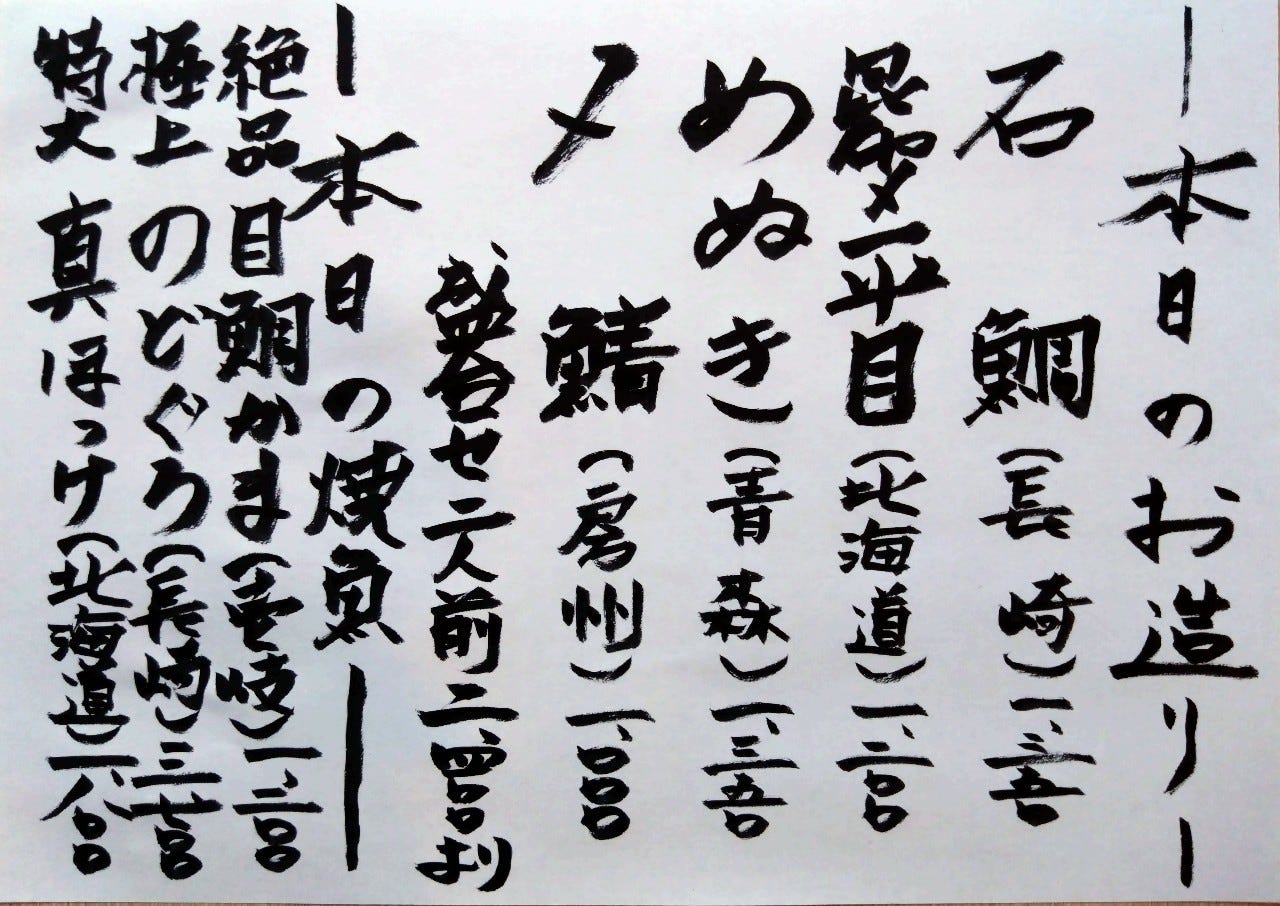 ー本日のお造りー
石鯛(長崎)一、二五〇
昆布〆平目(北海道)一、二〇〇
めぬき(青森)一、三五〇
〆鯖(房州)一、〇〇〇
盛合せ二人前二、四〇〇より
ー本日の焼魚ー
絶品目鯛かま(壱岐)一、二〇〇
極上のどぐろ(長崎)三、七〇〇
特大真ほっけ(北海道)一、八〇〇